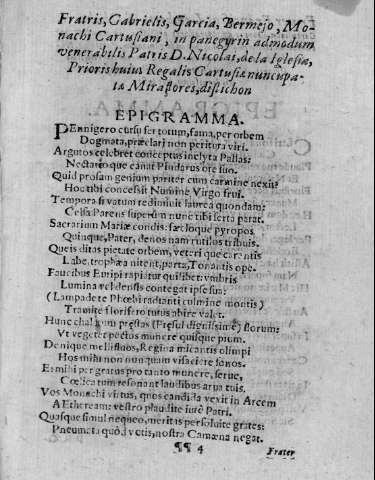 Fratris, Gabrielis, Garcia, Bermejo, Mo-
nachi Cartusiani, in panegyrin admodum
venerabilis Patris D. Nicolai, de la Iglesia,
Prioris huius Regalis Cartusiæ nuncupa-
tæ Miraflores, distichon
EPIGRAMMA.
PEnnigero cursu fer totum, fama, per orbem
Dogmata, præclari non peritura viri.
Argutos celebret conceptus inclyta Pallas:
Nectareo que canat Pindarus ore suo.
Quid prosam genium pariter cum carmine nexũ?
Hoc tibi concessit Numine Virgo frui.
Tempora si vatum redimivit laurea quondam:
Celsa Parens superùm nunc tibi serta parat.
Sacrarium Mariæ condis: fær loque pyropos
Quinque, Pater, denos nam rutilos tribuis.
Queis ditas pietate orbem, veteri que carentis
Labe, trophæa nitent, parta, Tonantis ope.
Faucibus Euripi rapiatur quilibet: umbris
Lumina vel densis contegat ipse sua:
(Lampade te Phœbi radianti culmine montis)
Tramite florifero tutus abire valet.
Hunc præstas (Præsul dignissime) florum:
Vt vegetet pectus munere quisque pium.
Denique mellifluos, Regina micantis olimpi
Hos mihi non nunquam visa ciere sonos.
Et mihi per gratus pro tanto munere, serue,
Cœlica tum resonant laudibus arua tuis.
Vos Monachi virtus, quos candida vexit in Arcem
AEtheream: vestro plaudite iure Patri.
Quas que simul nequeo, meritas persoluite grates:
Pneumata quòd vetis, nostra Camœna negat.
¶¶ 4
Frater